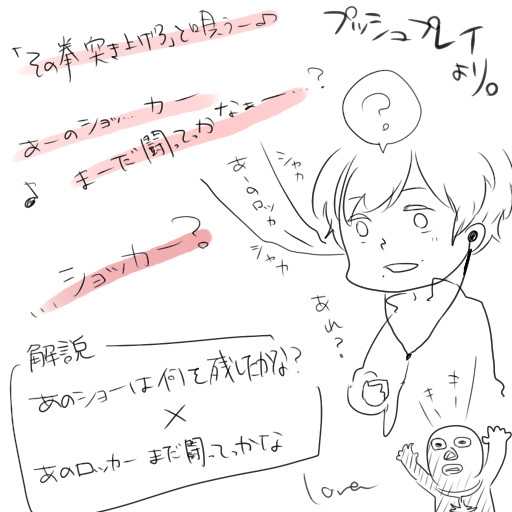 プッシュプレイ
より。
「その拳突き上げろ」と唄うー♪
あーのショッ…カー
まーだ闘ってっかなぁー…?
♪
…ショッカー?
?
シャカ
あーのロッカ
シャカ
あれ?
解説
あのショーは何を残したかな?
×
あのロッカー まだ闘ってっかな
キ
キ